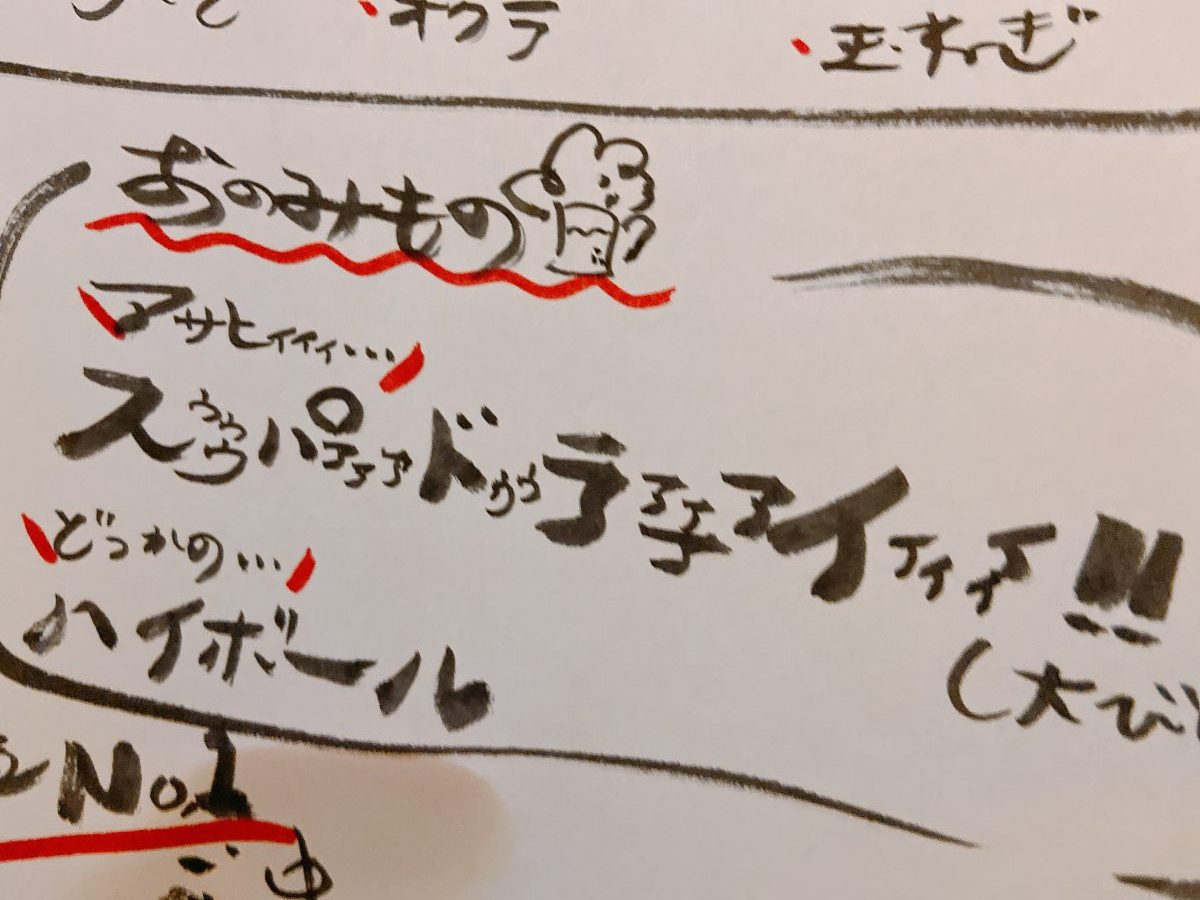 オクラ
玉ねぎ
おのみもの
アサヒィィィ…
スゥゥゥパァァァドゥゥラァァァァイィィィ!!!
どっかの…
ハイボール
(大び
No.1